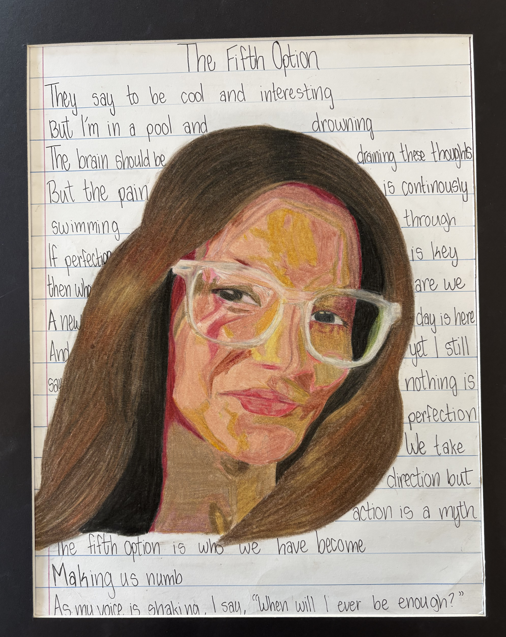 The Fifth Option
They say to be cool and interesting
But I'm in a pool and drowning
The brain should be draining these thoughts
But the pain is continously
swimming through
If perfection is key
then who are we
A new day is here
And yet I still
nothing is
perfection
We take
direction but
action is a myth
The fifth option is who we have become
Making us numb
As my voice is shaking, I say, "When will I ever be enough?"